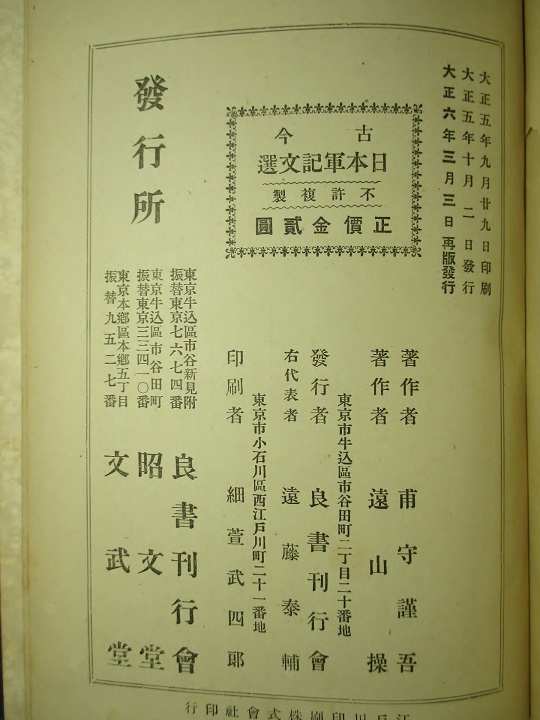 大正五年九月廿九日印刷
大正五年十月二日發行
大正六年三月三日再版發行
古今
日本軍記文選
不許複製
正價金貳圓
著作者 甫守謹吾
著作者 遠山操
東京市牛込區市谷田町二丁目二十番地
發行者 良書刊行會
右代表者 遠藤泰輔
東京市小石川區西江戸川町二十一番地
印刷者 細萱武四郎
發行所
東京牛込區市谷新見附
振替東京七六七四番
良書刊行會
東京牛込區市谷田町
振替東京三三四一〇番
昭文堂
東京本鄉區本鄉五丁目
振替九五二七番
文武堂
江戸川印刷株式會社印行